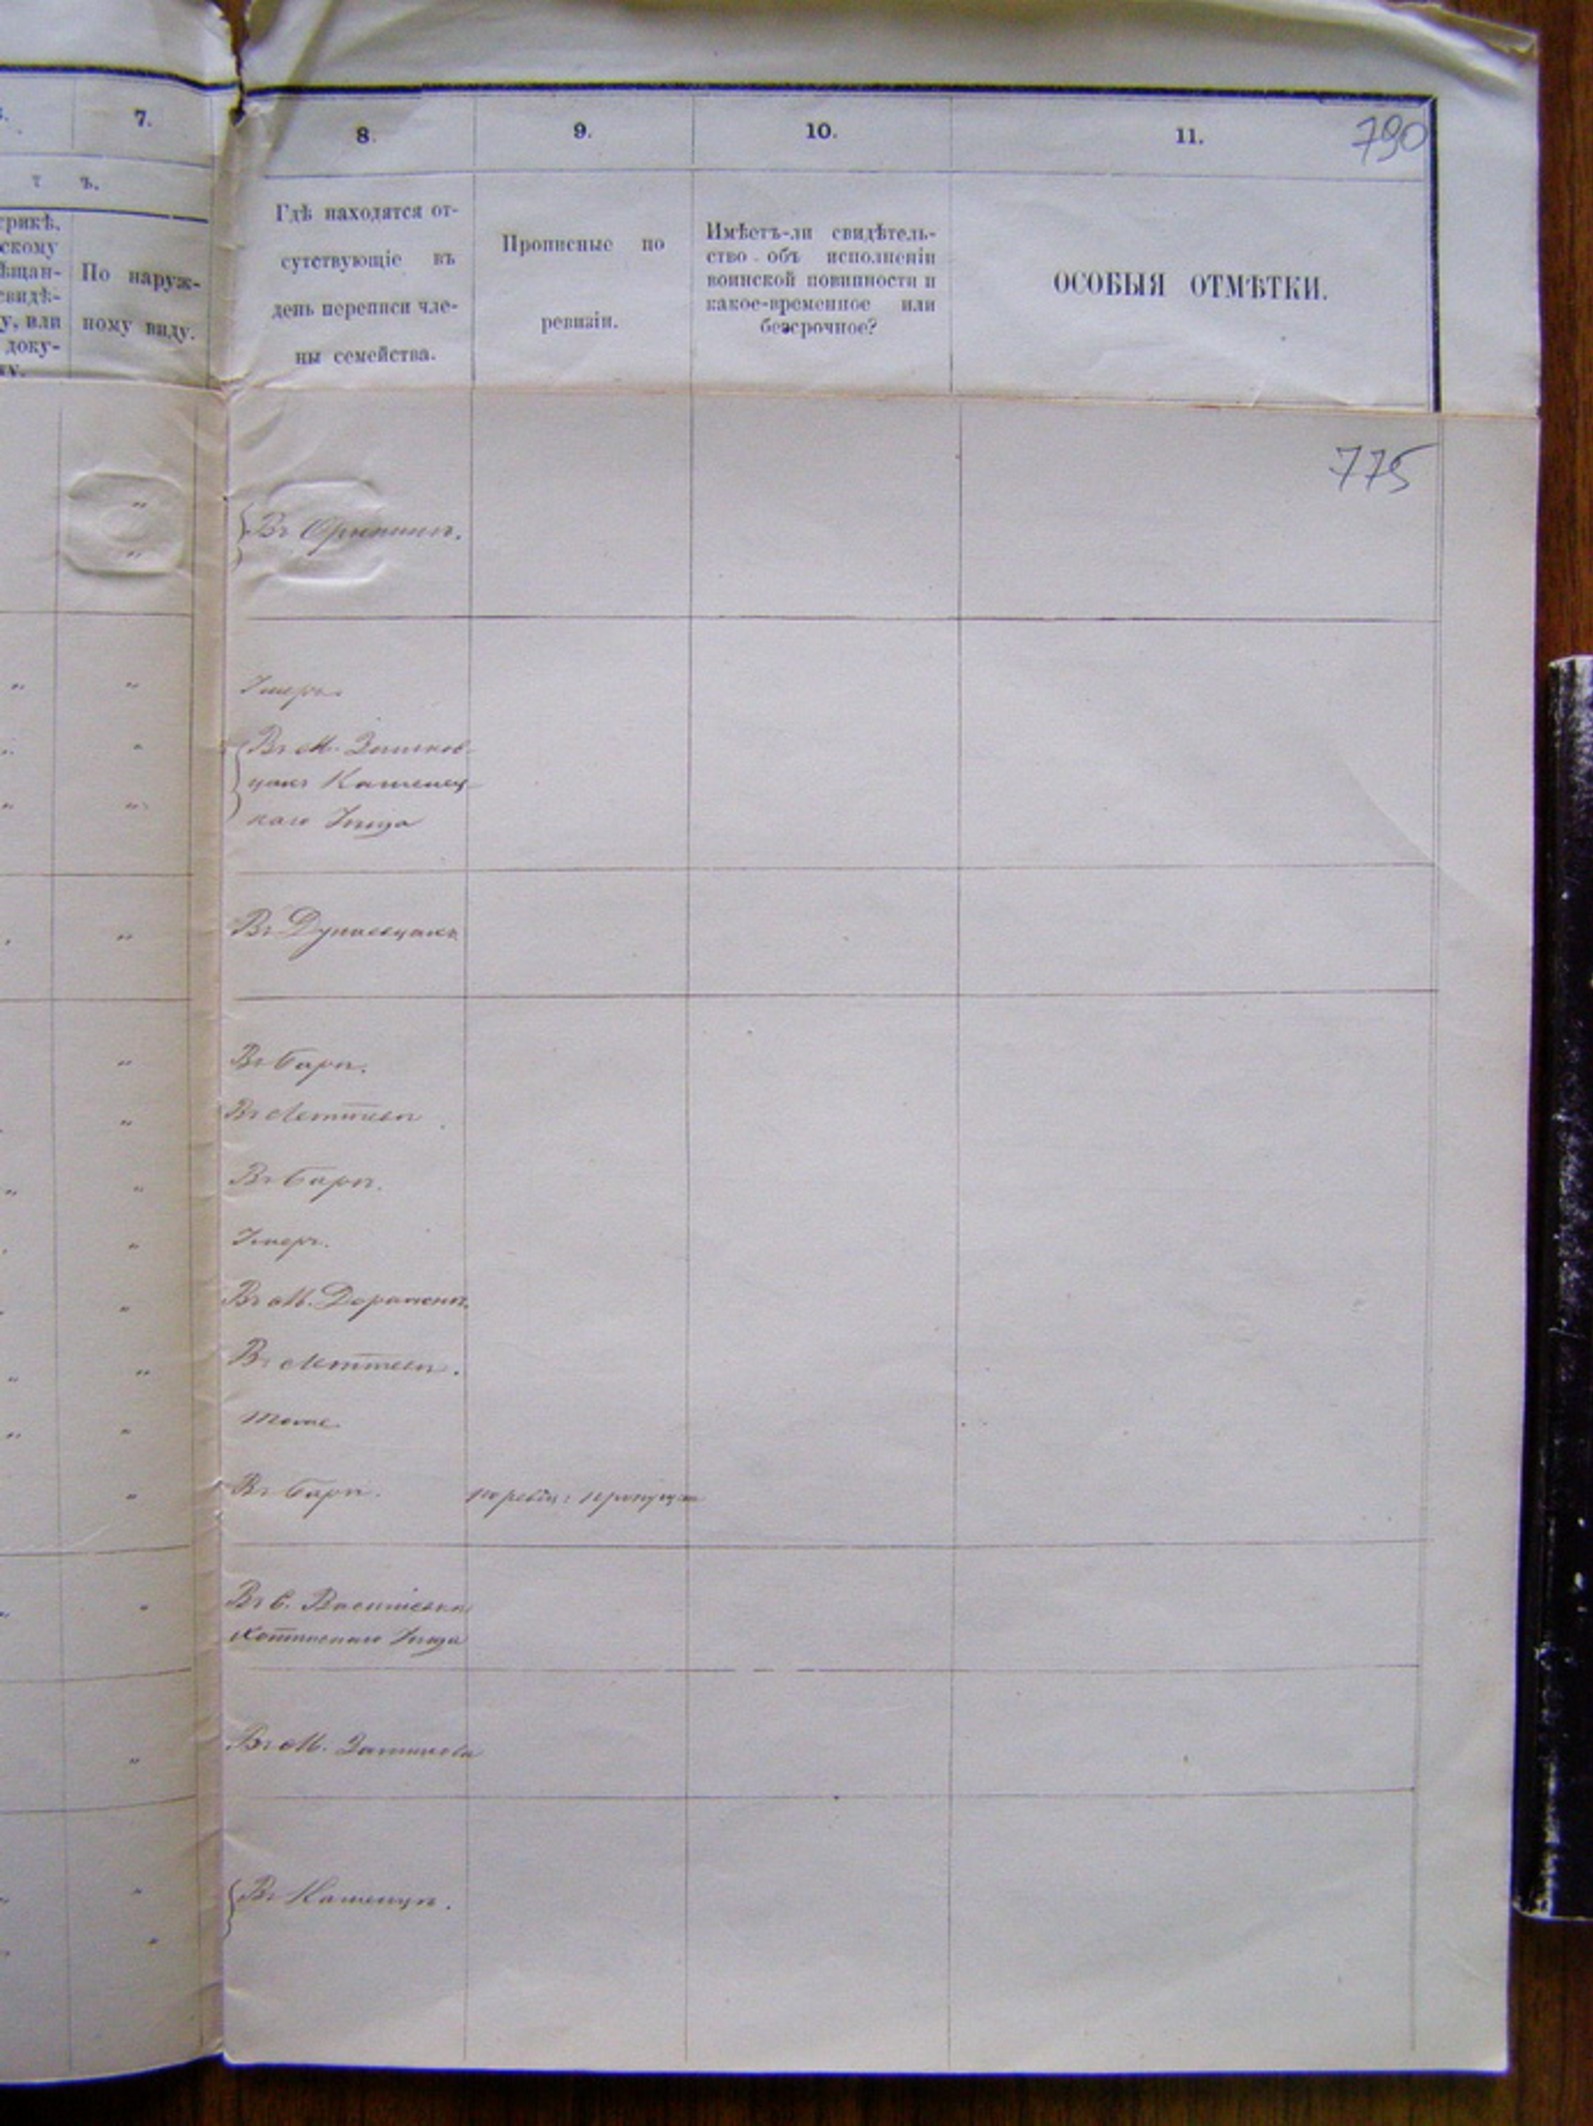 7.
8.
9.
10.
11.
790
т ъ.
трикѣ,
скому
ѣщан-
свидѣ-
у, или
доку-
По наруж-
ному виду.
Гдѣ находятся от-
сутствующіе въ
день переписи чле-
ны семейства.
Прописные по
ревизіи.
Имѣетъ-ли свидѣтель-
ство объ исполненіи
воинской повинности и
какое-временное или
безсрочное?
ОСОБЫЯ ОТМѢТКИ.
775
Въ Орининѣ.
Умеръ.
Въ М.
цахъ Каменец-
каго Уѣзда
Въ Дунаевцахъ
Въ Барѣ.
Въ Летичевѣ
Въ Барѣ.
Умеръ.
Въ М. Деражнѣ.
Въ Летичевѣ.
тоже
Въ Барѣ.
по ревиз:
Въ С.
Хотинскаго Уѣзда
Въ М.
Въ Каменцѣ.